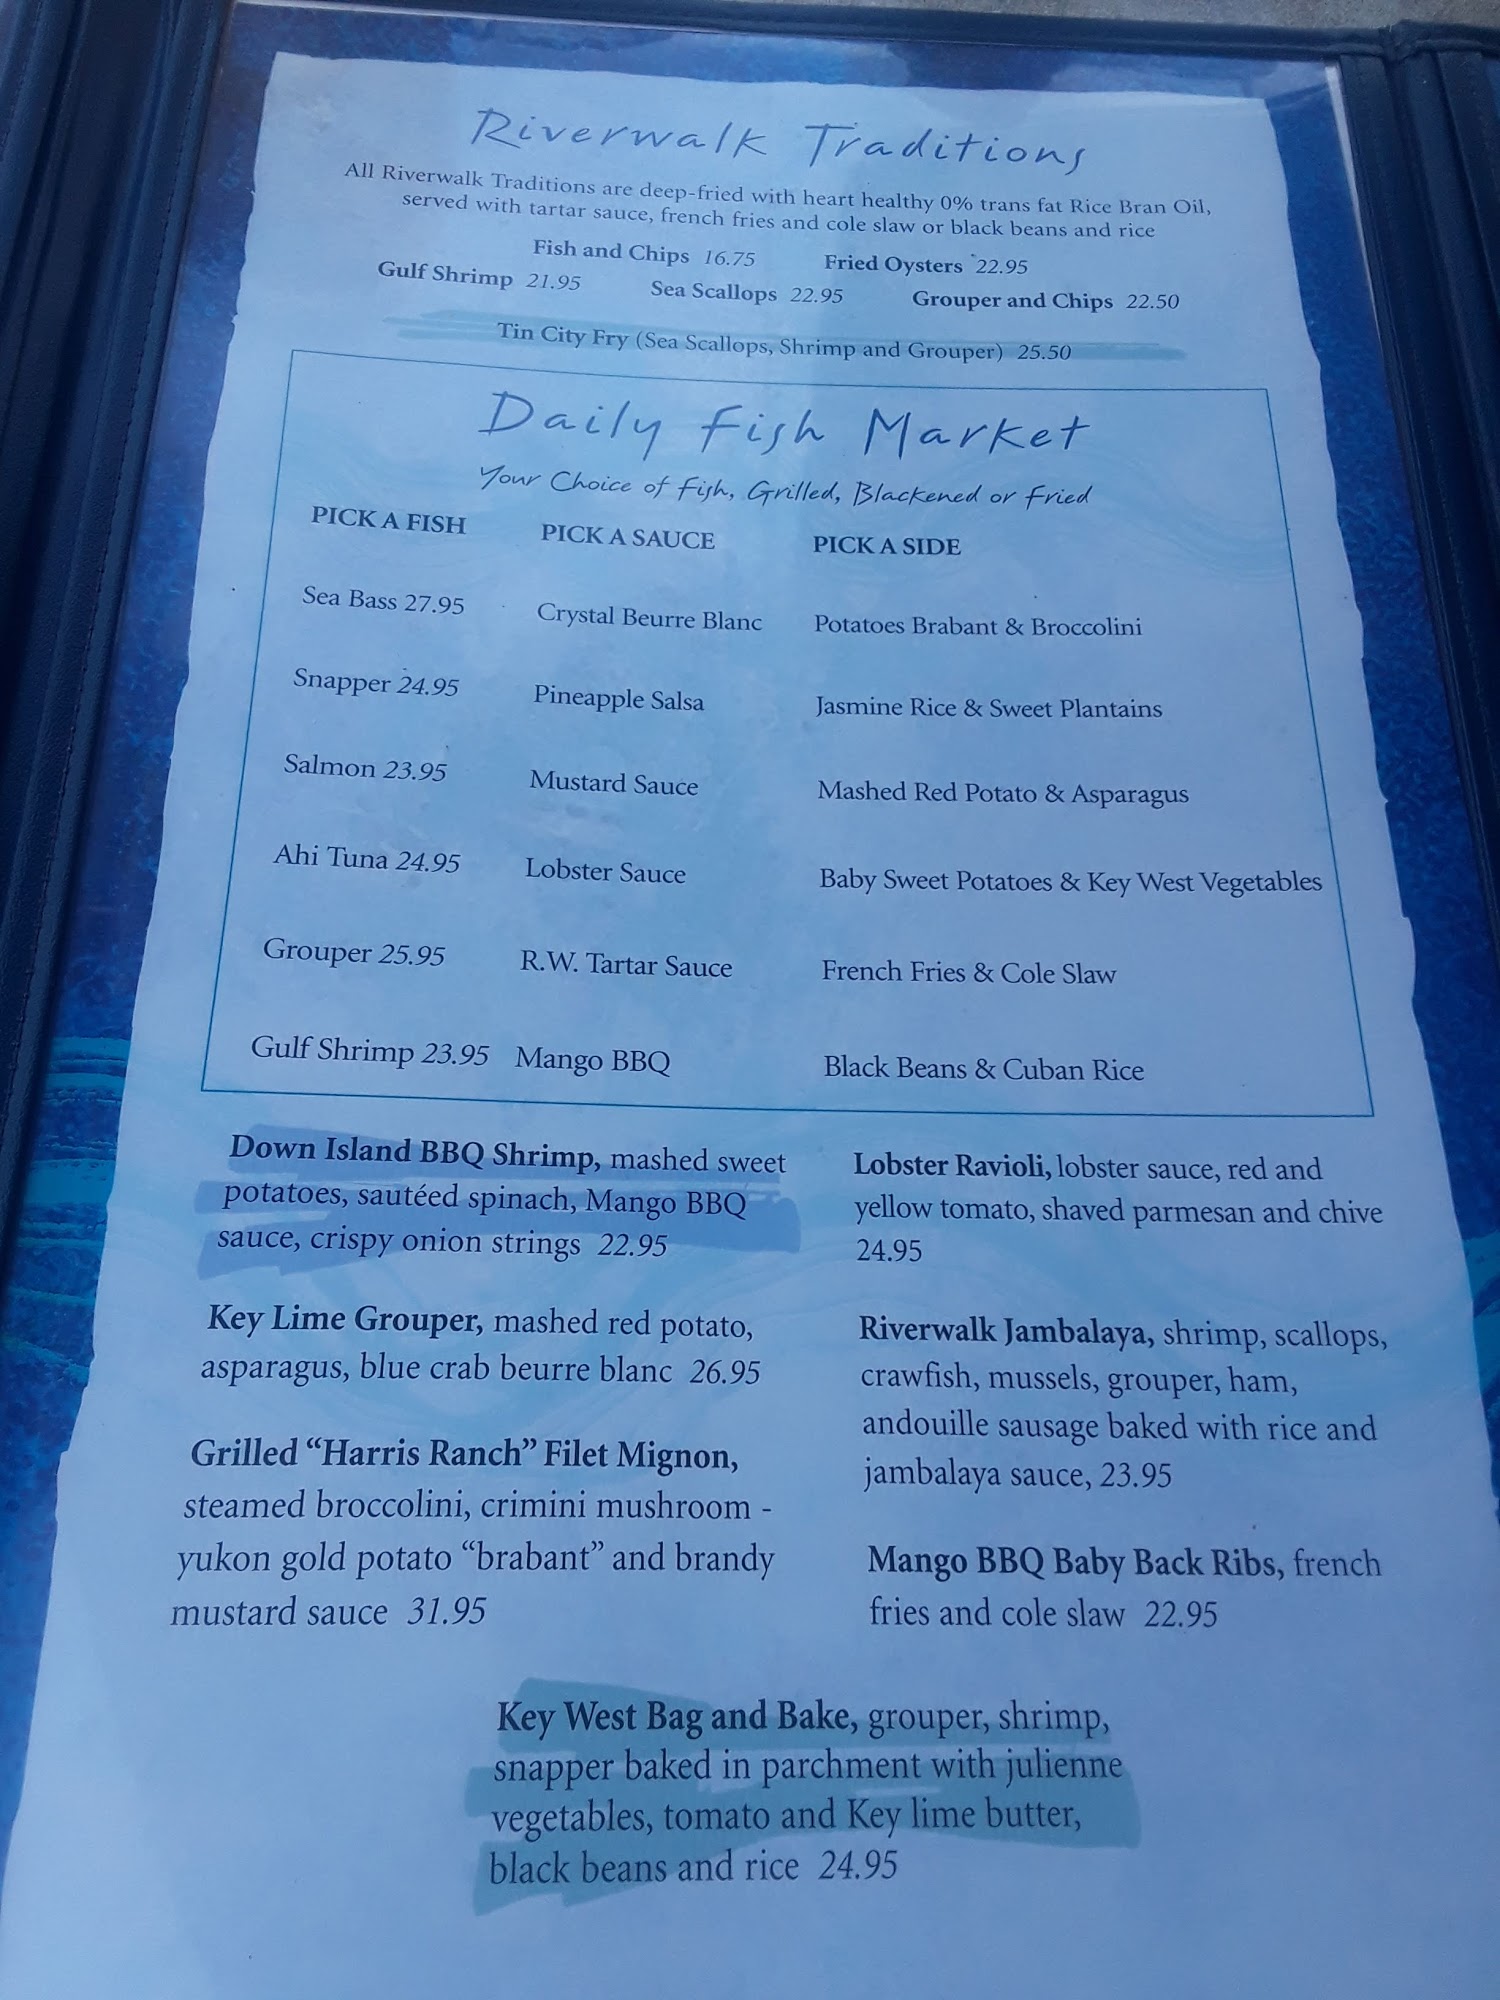 Riverwalk Traditions
All Riverwalk Traditions are deep-fried with heart healthy 0% trans fat Rice Bran Oil,
served with tartar sauce, french fries and cole slaw or black beans and rice
Fish and Chips 16.75 Fried Oysters 22.95
Gulf Shrimp 21.95 Sea Scallops 22.95 Grouper and Chips 22.50
Tin City Fry (Sea Scallops, Shrimp and Grouper) 25.50
Daily Fish Market
Your Choice of Fish, Grilled, Blackened or Fried
PICK A FISH PICK A SAUCE PICK A SIDE
Sea Bass 27.95 Crystal Beurre Blanc Potatoes Brabant & Broccolini
Snapper 24.95 Pineapple Salsa Jasmine Rice & Sweet Plantains
Salmon 23.95 Mustard Sauce Mashed Red Potato & Asparagus
Ahi Tuna 24.95 Lobster Sauce Baby Sweet Potatoes & Key West Vegetables
Grouper 25.95 R.W. Tartar Sauce French Fries & Cole Slaw
Gulf Shrimp 23.95 Mango BBQ Black Beans & Cuban Rice
Down Island BBQ Shrimp, mashed sweet
potatoes, sautéed spinach, Mango BBQ
sauce, crispy onion strings 22.95
Key Lime Grouper, mashed red potato,
asparagus, blue crab beurre blanc 26.95
Grilled “Harris Ranch” Filet Mignon,
steamed broccolini, crimini mushroom -
yukon gold potato “brabant” and brandy
mustard sauce 31.95
Lobster Ravioli, lobster sauce, red and
yellow tomato, shaved parmesan and chive
24.95
Riverwalk Jambalaya, shrimp, scallops,
crawfish, mussels, grouper, ham,
andouille sausage baked with rice and
jambalaya sauce, 23.95
Mango BBQ Baby Back Ribs, french
fries and cole slaw 22.95
Key West Bag and Bake, grouper, shrimp,
snapper baked in parchment with julienne
vegetables, tomato and Key lime butter,
black beans and rice 24.95